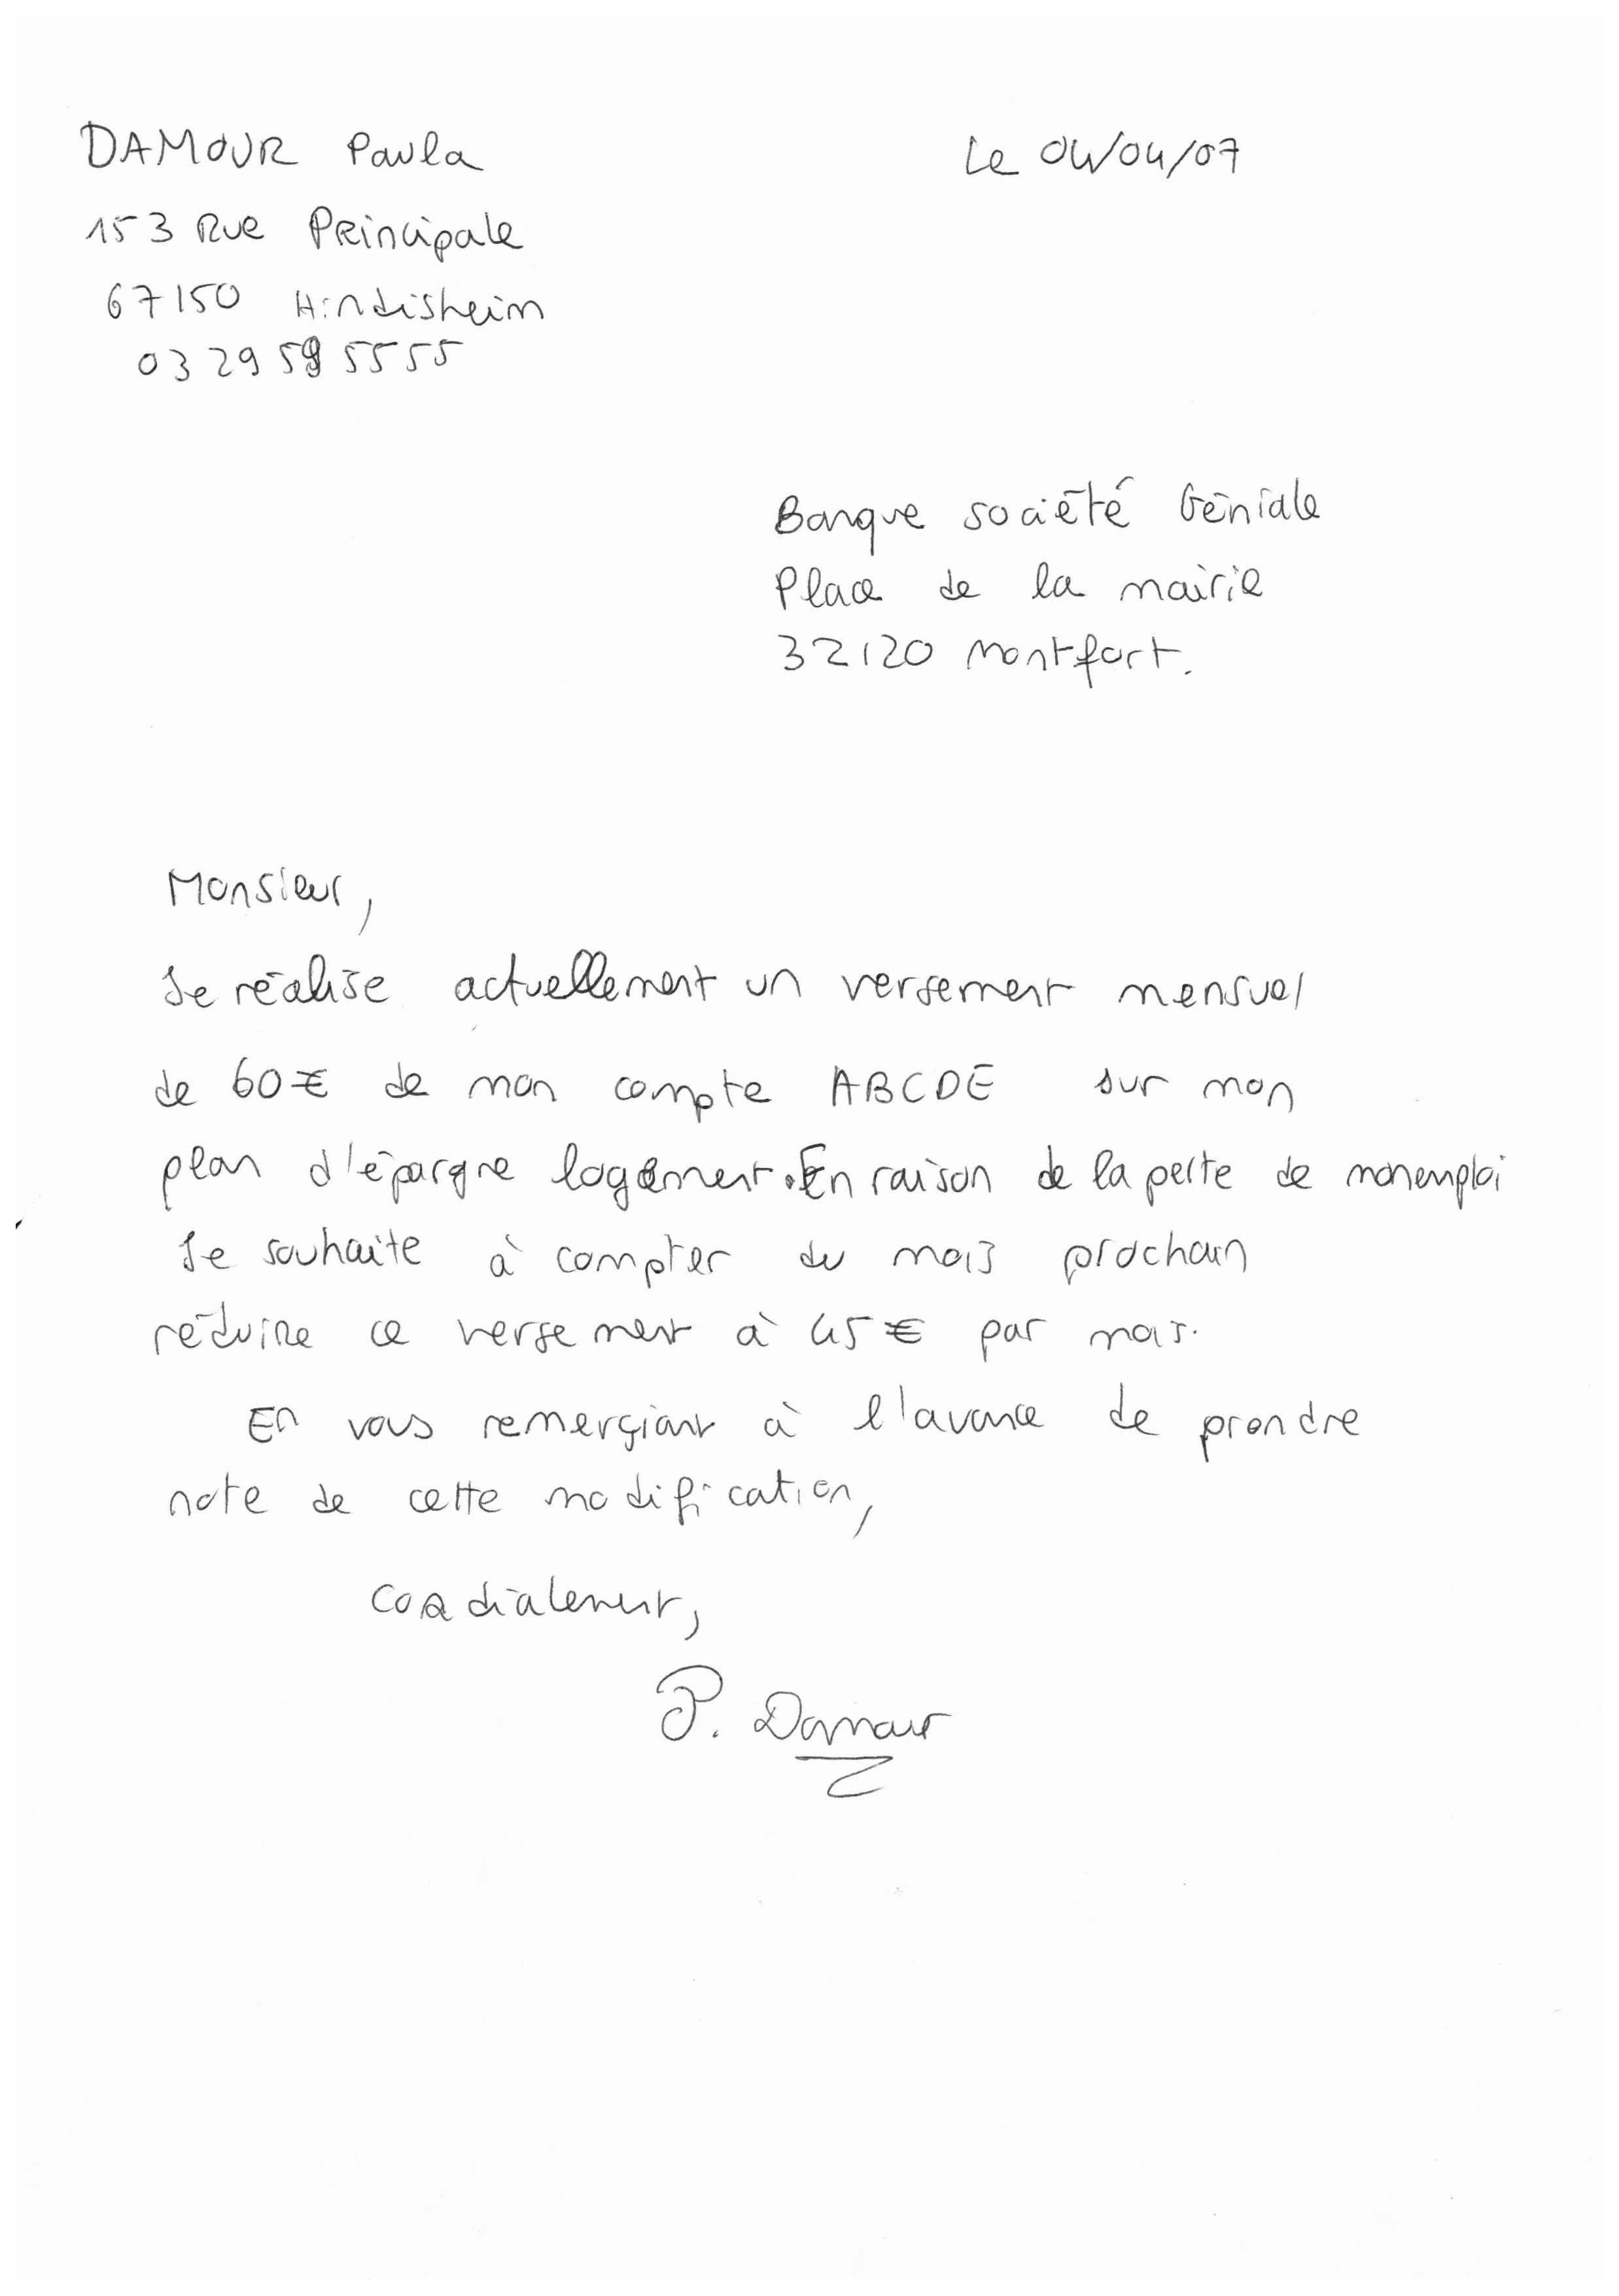 DAMOUR Paula
Le 04/04/07
153 Rue Principale
67150 Hindisheim
03 29 59 55 55
Banque société Géniale
Place de la mairie
32120 Montfort.
Monsieur,
Je réalise actuellement un versement mensuel
de 60€ de mon compte ABCDE sur mon
plan d'épargne logement. En raison de la perte de mon emploi
Je souhaite à compter du mois prochain
réduire ce versement à 45€ par mois.
En vous remerçiant à l'avance de prendre
note de cette modification,
Cordialement,
P. Damour